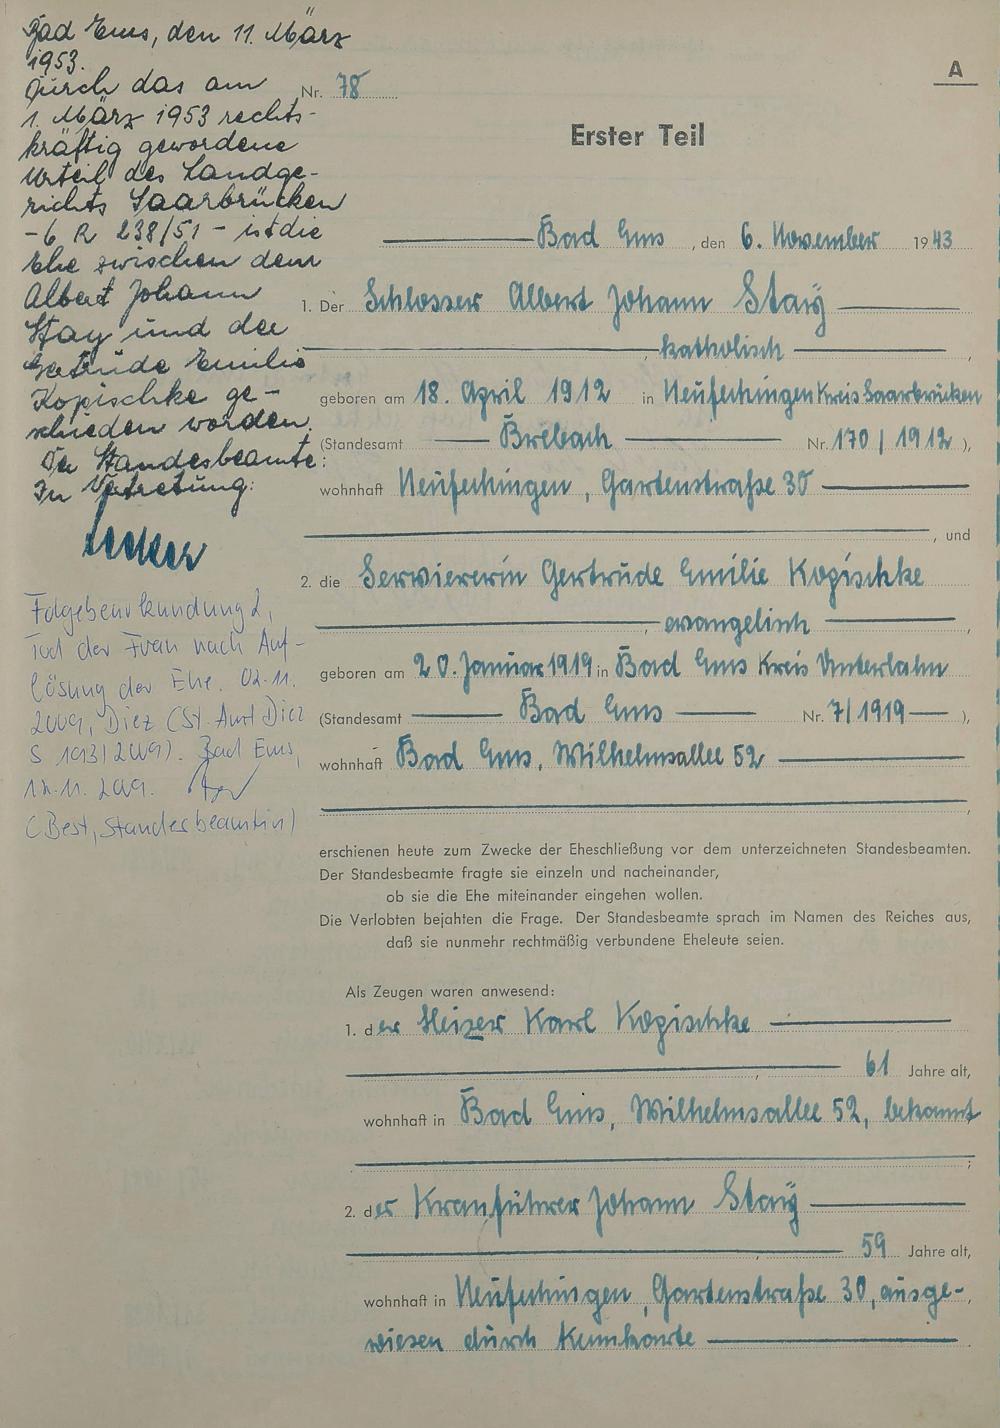 Bad Ems, den 11. März
1953.
Durch das am
1. März 1953 rechts-
kräftig gewordene
Urteil des Landge-
richts Saarbrücken
-6 R 238/51 - ist die
Ehe zwischen dem
Albert Johann
Stay und der
Gertrude Emilie
Kopischke ge-
schieden worden.
Der Standesbeamte:
In Vertretung:
Folgebeurkundung 2,
Tod der Frau nach Auf-
lösung der Ehe. 02.11.
2009, Diez (St. Amt Diez
S 193/2009). Bad Ems,
2009.
(Best, Standesbeamtin)
A
Nr. 78
Erster Teil
Bad Ems, den 6. November 1943
1. Der Schlosser Albert Johann Staÿ
katholisch,
geboren am 18. April 1912 in Neufechingen Kreis Saarbrücken
(Standesamt Brebach Nr. 170/1912),
wohnhaft Neufechingen, Gartenstraße 30
, und
2. die Serviererin Gertrude Emilie Kopischke
, evangelisch,
geboren am 20. Januar 1919 in Bad Ems Kreis Unterlahn
(Standesamt Bad Ems Nr. 7/1919),
wohnhaft Bad Ems, Wilhelmsallee 52
,
erschienen heute zum Zwecke der Eheschließung vor dem unterzeichneten Standesbeamten.
Der Standesbeamte fragte sie einzeln und nacheinander,
ob sie die Ehe miteinander eingehen wollen.
Die Verlobten bejahten die Frage. Der Standesbeamte sprach im Namen des Reiches aus,
daß sie nunmehr rechtmäßig verbundene Eheleute seien.
Als Zeugen waren anwesend:
1. der Heizer Karl Kopischke
, 61 Jahre alt,
wohnhaft in Bad Ems, Wilhelmsallee 52, bekannt
;
2. der Kranführer Johann Staÿ
, 59 Jahre alt,
wohnhaft in Neufechingen, Gartenstraße 30, ausge-,
wiesen durch Kennkarte